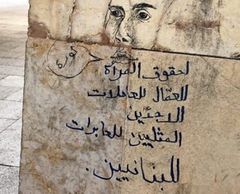 لحقوق المرأة
للعمّال للعاملات
اللاجئين
المثليين للعابرات
للبنانيين.